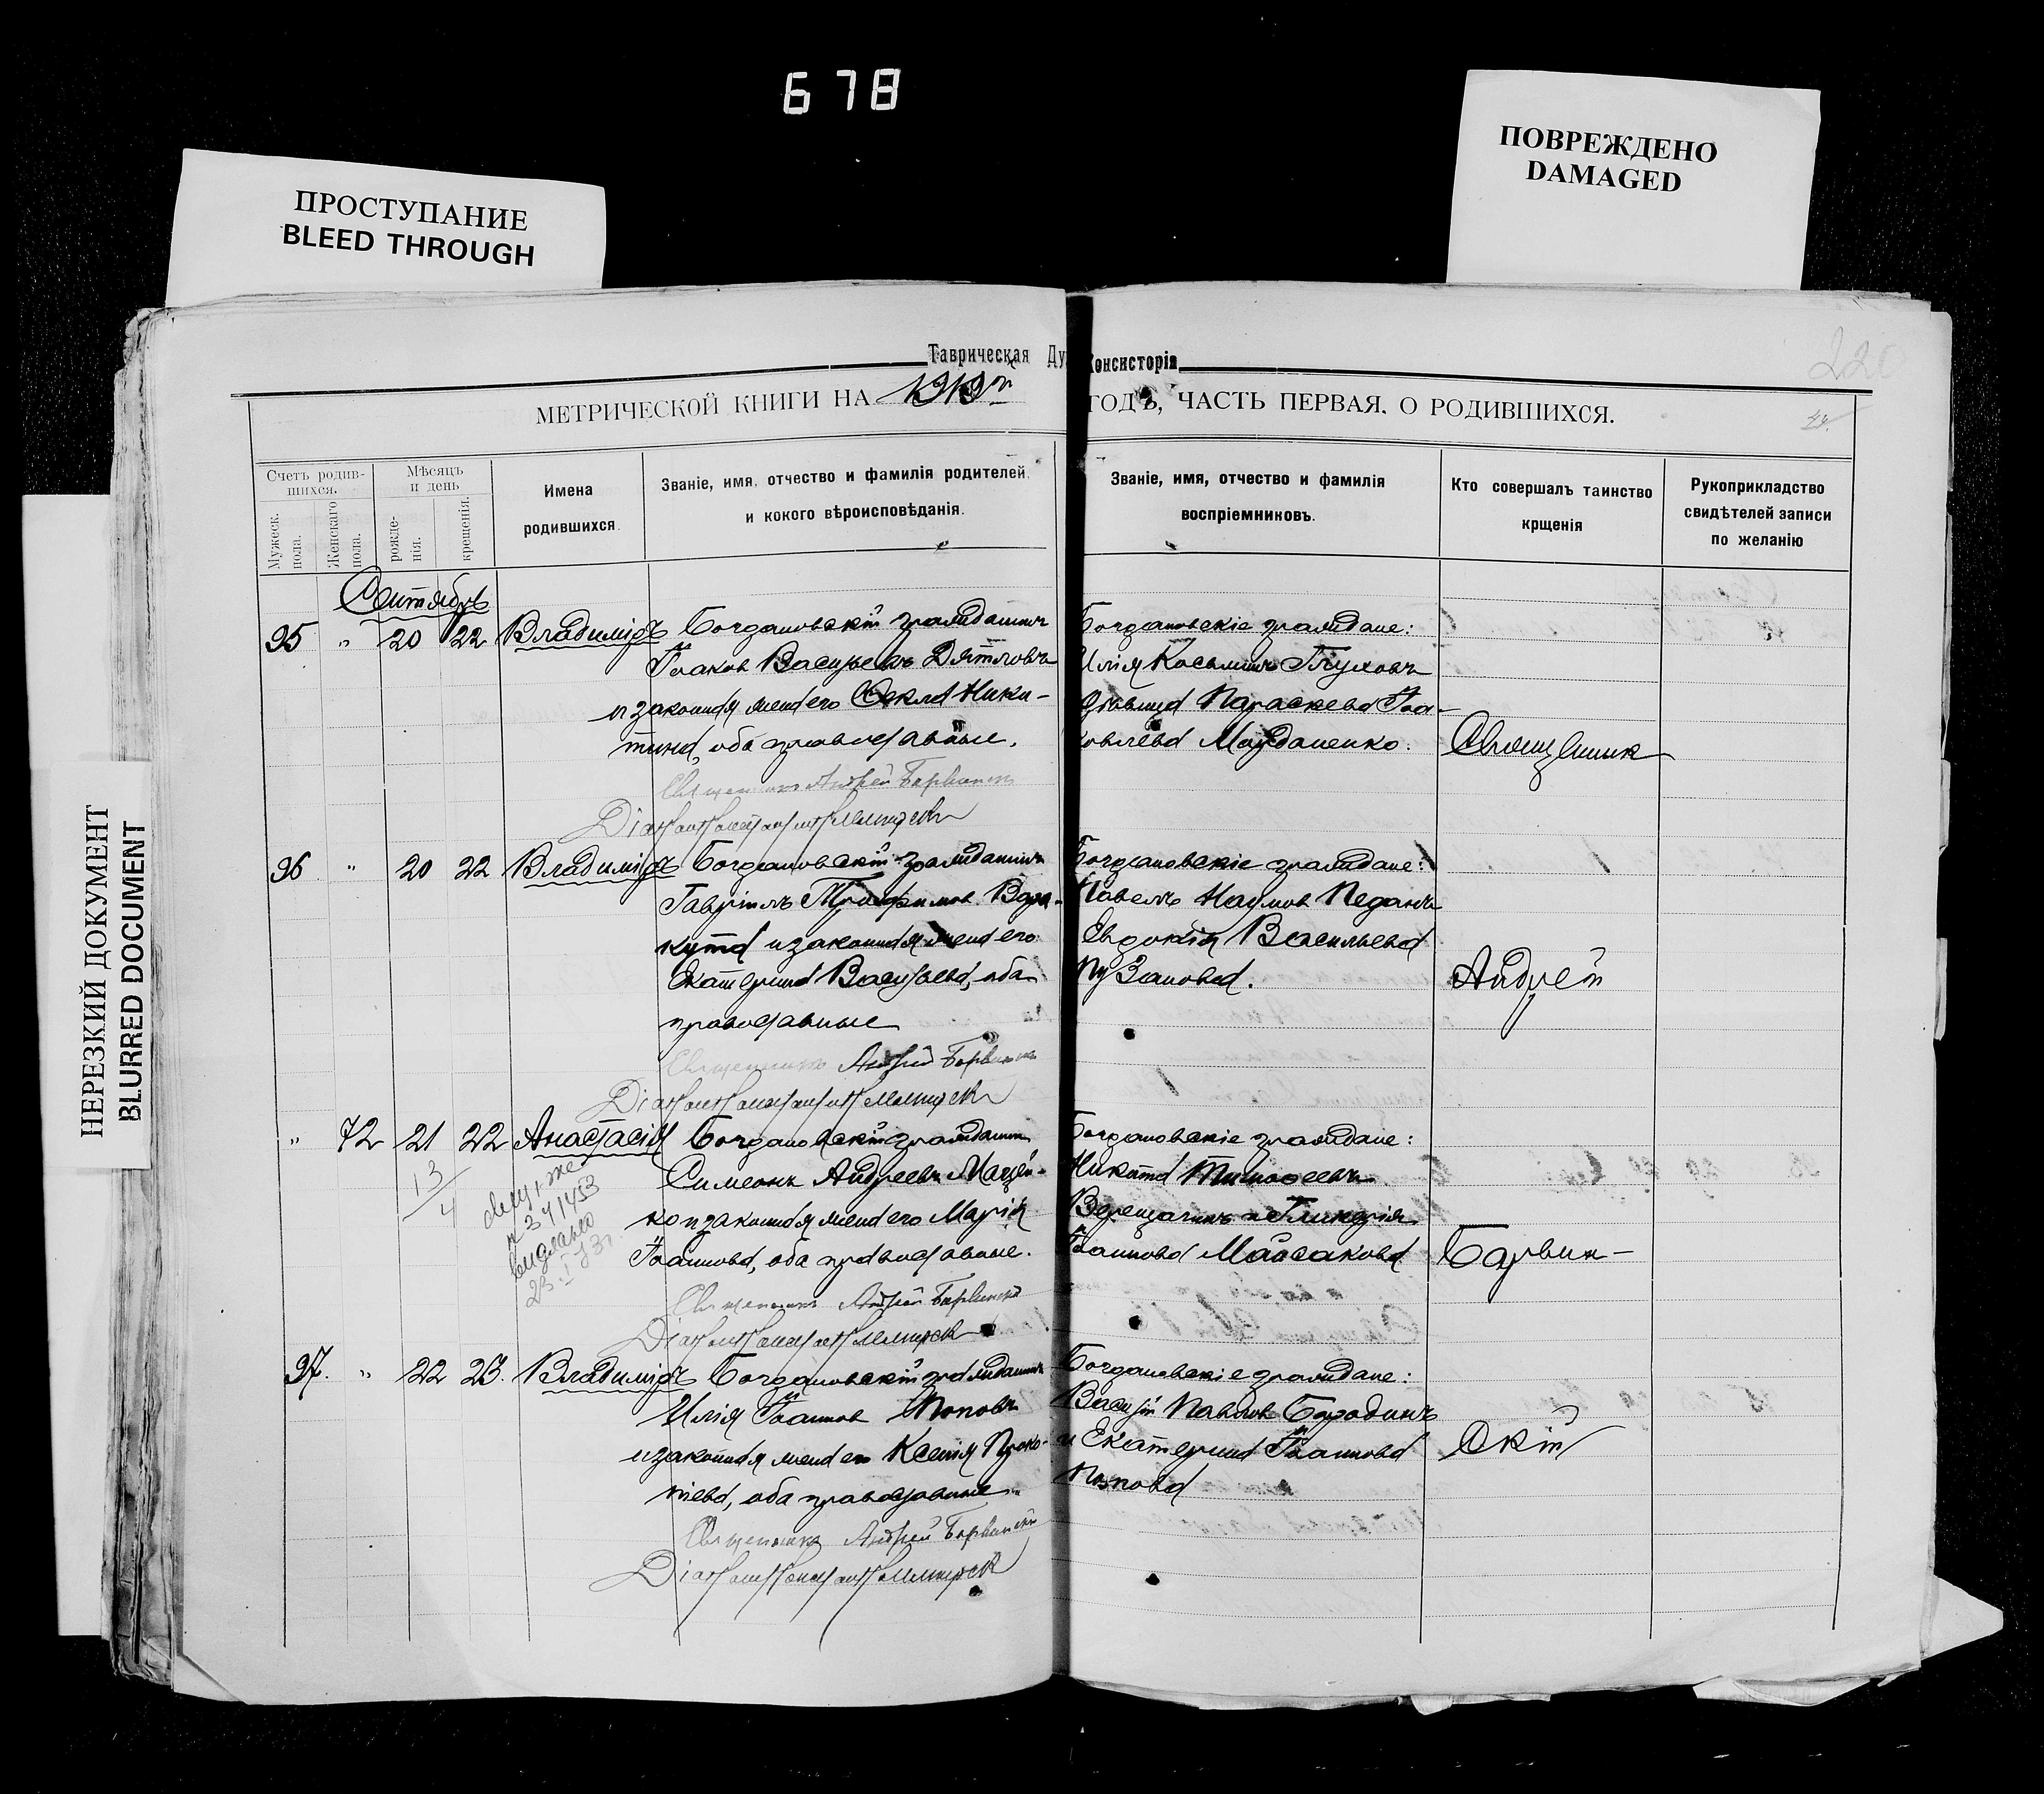 678
ПРОСТУПАНИЕ
BLEED THROUGH
ПОВРЕЖДЕНО
DAMAGED
НЕРЕЗКИЙ ДОКУМЕНТ
BLURRED DOCUMENT
Таврическая Ду Консисторія
220
МЕТРИЧЕСКОЙ КНИГИ НА 1919 ГОДЪ, ЧАСТЬ ПЕРВАЯ, О РОДИВШИХСЯ.
Счетъ родив-
шихся.
Мужеск.
пола.
Женскаго
пола.
Мѣсяцъ
и день
рожде-
нія.
крещенія.
Имена
родившихся.
Званіе, имя, отчество и фамилія родителей,
и кокого вѣроисповѣданія.
Званіе, имя, отчество и фамилія
воспріемниковъ.
Кто совершалъ таинство
крщенія
Рукоприкладство
свидѣтелей записи
по желанію
Сентябрь
95 " 20 22 Владиміръ
Богдановскій гражданинъ
Іоаковъ Васильевъ Дятловъ
и законная жена его Ѳекла Ники-
тина, оба православные.
Священникъ Андрей Барвинскій
Богдановскіе граждане:
Илія Косьминъ Глуховъ
дѣвица Параскева Іоа-
ковлева Мойданенко.
Священник
96 " 20 22 Владиміръ
Богдановскій гражданинъ
Гавріилъ Трофимов. Вара-
кута и законная жена его
Екатерина Васильева, оба
православные
Священникъ Андрей Барвинскій
Богдановскіе граждане:
Павелъ Наумов Педанъ
Евдокія Васильева
Пузанова.
Андрей
" 72 21 22 Анастасія
13/4
Богдановскій гражданин
Симеонъ Андреевъ Мацей-
ко и законная жена его Марія
Іоаннова, оба православные.
Священникъ Андрей Барвинскій
Богдановскіе граждане:
Никита Тимофеевъ
Верещагинъ и Гликерія
Іоаннова Майсакова
Барвин-
97. " 22 23. Владиміръ
Богдановскій гражданинъ
Илія Іоаннов Поповъ
и законная жена его Ксенія Проко-
піева, оба православные
Священникъ Андрей Барвинскій
Богдановскіе граждане:
Василій Павлов Бородинъ
и Екатерина Іоаннова
Попова
скій